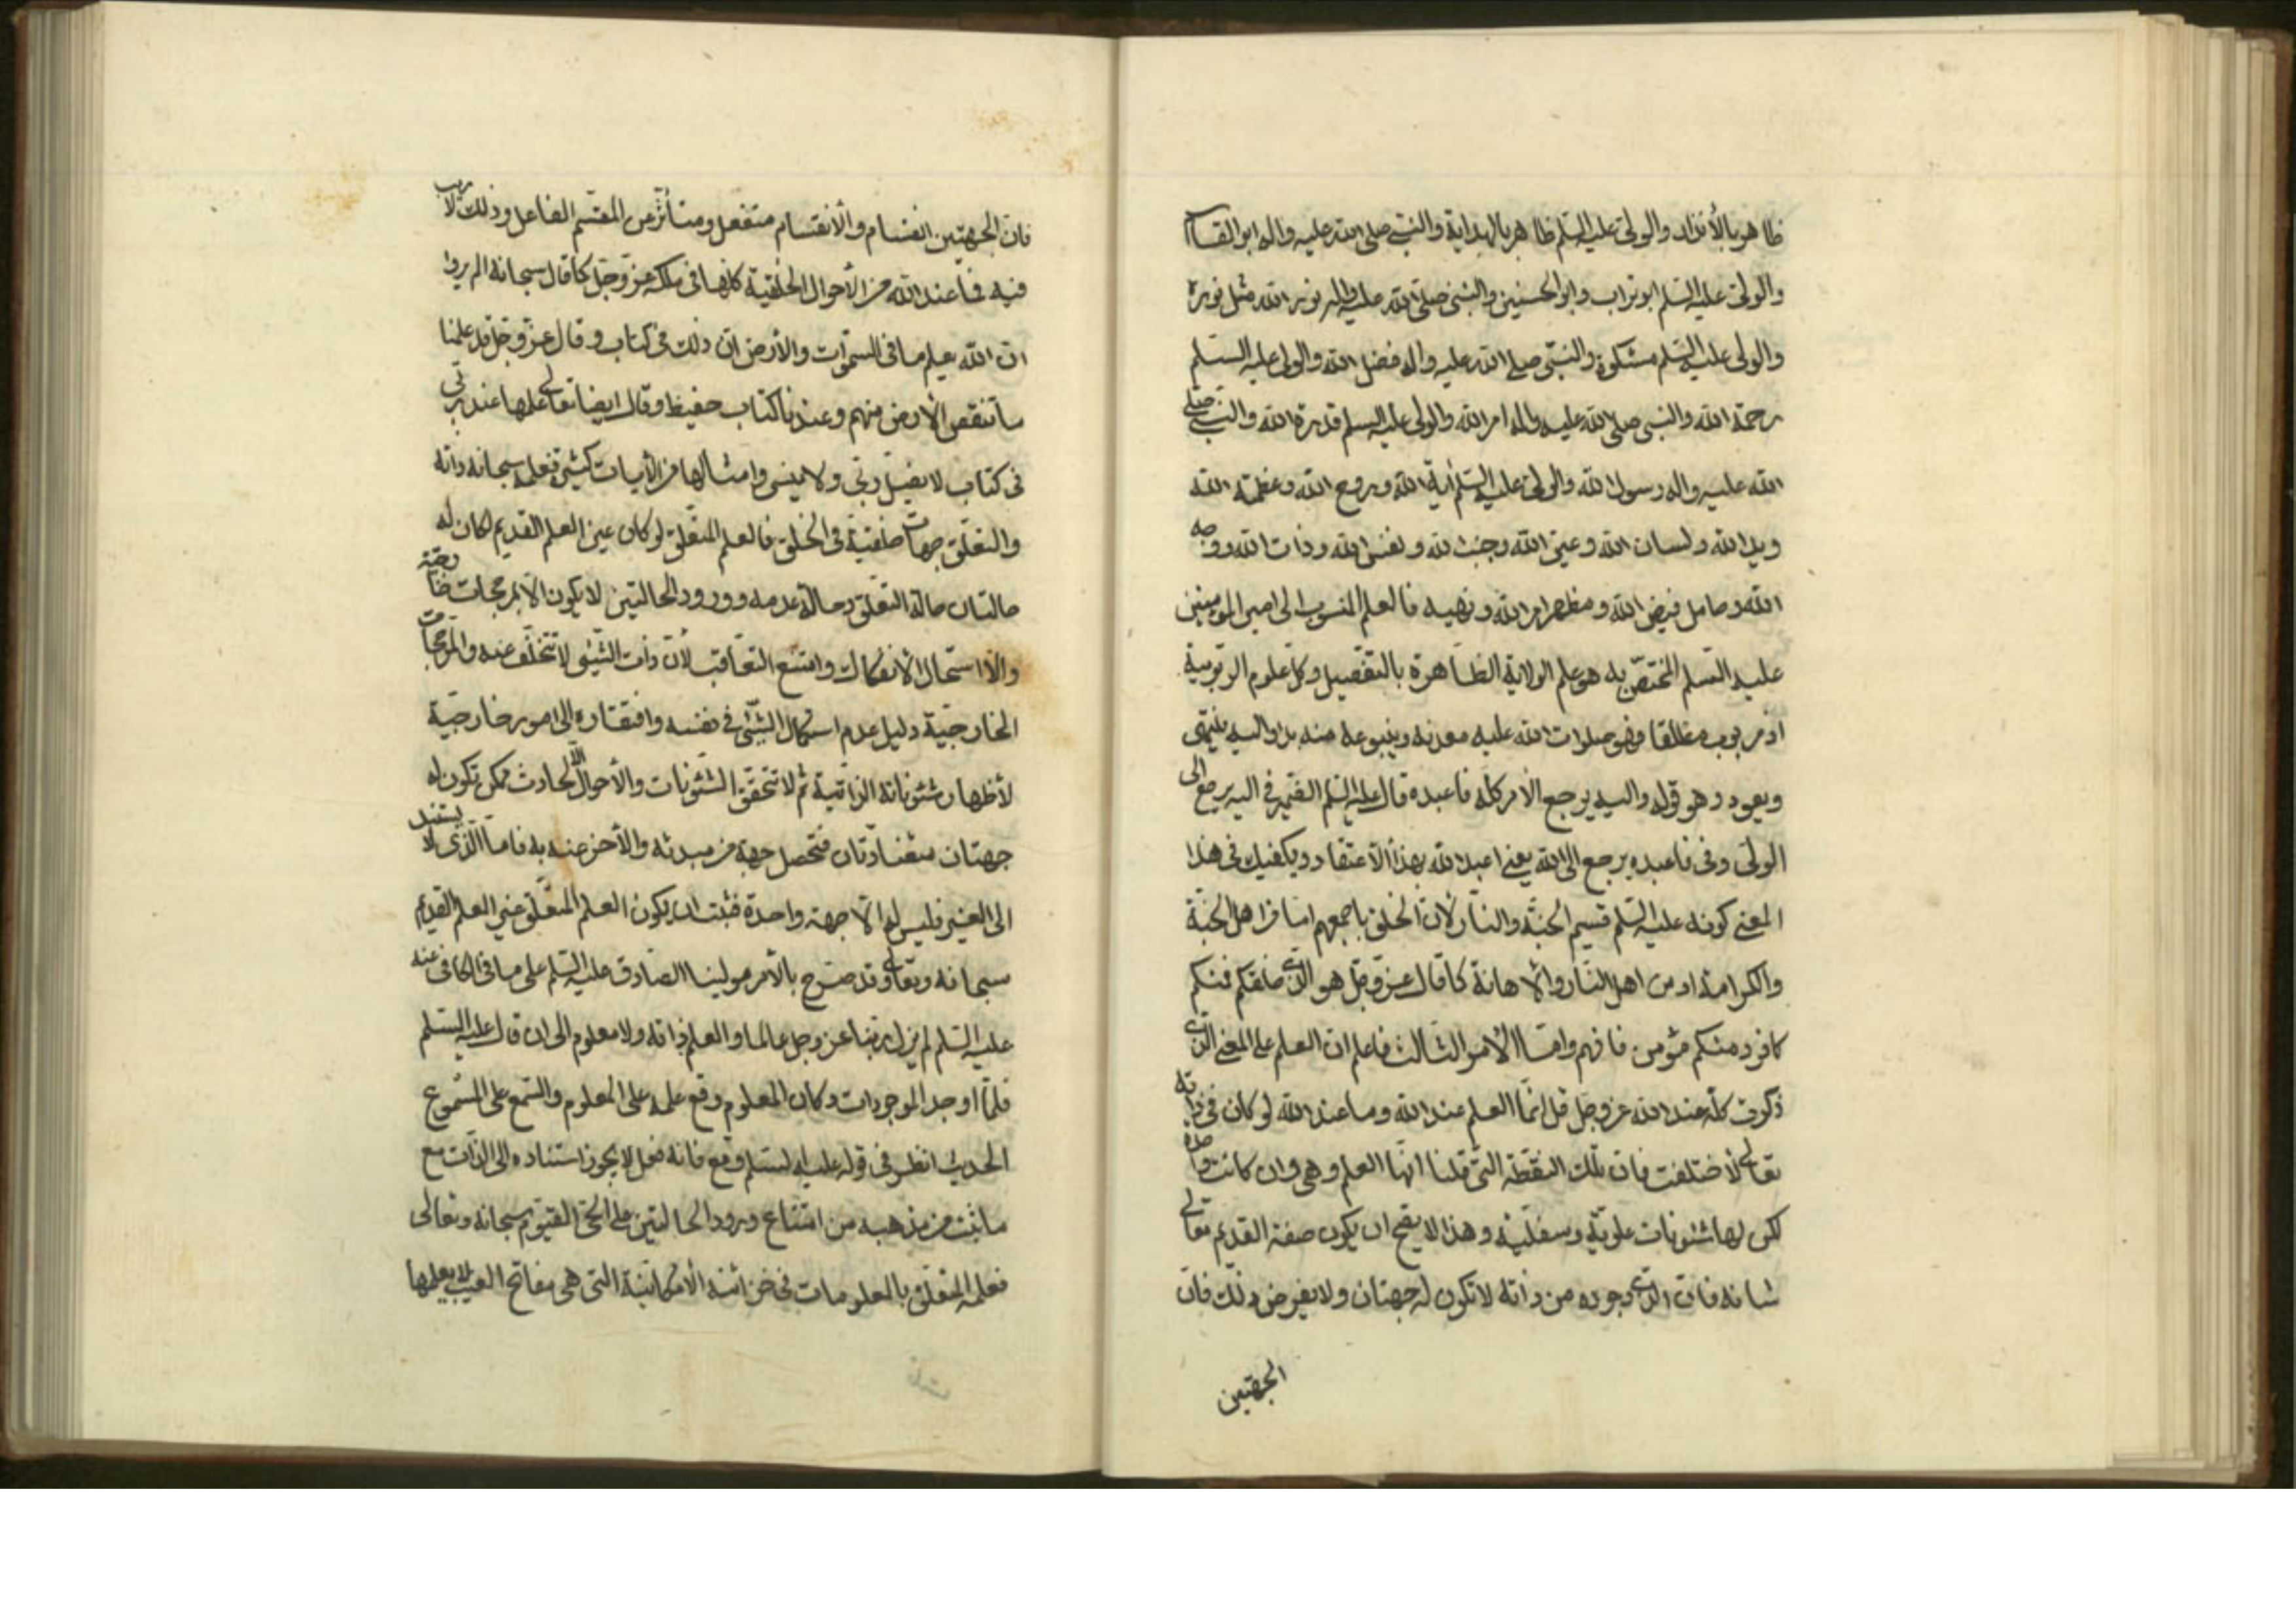 ظاهر بالأنذار والولي عليه السلم ظاهر بالهداية والنبي صلى الله عليه واله ابو القاسم
والولي عليه السلم ابو تراب وابو الحسنين والنبي صلى الله عليه واله نور الله مثل نوره
والولي عليه السلم مشكوة والنبي صلى الله عليه واله فضل الله والولي عليه السلم
رحمة الله والنبي صلى الله عليه واله امر الله والولي عليه السلم قدرة الله والنبي صلى
الله عليه واله رسول الله والولي عليه السلم آية الله وروح الله وعظمة الله
ويد الله ولسان الله وعين الله وجنب الله ونفس الله وذات الله ووجه
الله وحامل فيض الله ومظهر امر الله ونهيه فالعلم المنسوب الى امير المؤمنين
عليه السلم المختص به هو علم الولاية الظاهرة بالتفصيل وكل علوم الربوبية
اذ مربوب مطلقا فهو صلوات الله عليه معدنه وينبوعه منه بدا واليه ينتهى
ويعود وهو قوله واليه يرجع الأمر كله فاعبده قال عليه السلم الضمير في اليه يرجع الى
الولي وفي فاعبده يرجع الى الله يعني اعبد الله بهذا الأعتقاد ويكفيك في هذا
المعنى كونه عليه السلم قسيم الجنة والنار لأن الخلق باجمعهم اما من اهل الجنة
والكرامة او من اهل النار والأهانة كما قال عز وجل هو الذي خلقكم فمنكم
كافر ومنكم مؤمن فافهم واما الأمر الثالث فاعلم ان العلم على المعنى الذي
ذكرت كله عند الله عز وجل قل انما العلم عند الله وما عند الله لو كان في ذاته
تعالى لأختلفت فان تلك النقطة التي قلنا انها العلم وهي وان كانت واحدة
لكن لها شئونات علوية وسفلية وهذا لا يصح ان يكون صفة القديم تعالى
شانه فان الذي وجوده من ذاته لا تكون له جهتان ولا يفرض ذلك فان
الجهتين
فان الجهتين انقسام والأنقسام منفعل ومتأثر من المقسم الفاعل وذلك لا ريب
فيه فما عند الله من الأحوال الخلقية كلها في ملكه عز وجل كما قال سبحانه الم يروا
ان الله يعلم ما في السموات والأرض ان ذلك في كتاب وقال عز وجل قد علمنا
ما تنقص الأرض منهم وعندنا كتاب حفيظ وقال ايضا تعالى علمها عند ربي
في كتاب لا يضل ربي ولا ينسى وامثالها من الأيات كثيرة فعلمه سبحانه ذاته
والتعلق جهات خلقية في الخلق فالعلم المتعلق لو كان عين العلم القديم لكان له
حالتان حالة التعلق وحالة عدمه وورود الحالتين لا يكون الا بمرجحات خارجية
والا استحال الأنفكاك وامتنع التعاقب لأن ذات الشيئ لا تتخلف عنه والمرجحات
الخارجية دليل عدم استكمال الشيئ في نفسه وافتقاره الى امور خارجية
لأظهار شئوناته الذاتية ثم لا تتحقق الشئونات والأحوال الا لحادث ممكن تكون له
جهتان متضادتان فتحصل جهة من مبدئه والأخر عنه به فاما الذي لا يستند
الى الغير فليس له الا جهة واحدة فثبت ان يكون العلم المتعلق غير العلم القديم
سبحانه وتعالى وقد صرح بالأمر مولينا الصادق عليه السلم على ما في الكافي عنه
عليه السلم لم يزل ربنا عز وجل عالما والعلم ذاته ولا معلوم الى ان قال عليه السلم
فلما اوجد الموجودات وكان المعلوم وقع علمه على المعلوم والسمع على المسموع
الحديث انظر في قوله عليه السلم وقع فانه فعل لا يجوز استناده الى الذات مع
ما ثبت من مذهبه من امتناع ورود الحالتين على الحي القيوم سبحانه وتعالى
فعلمه المتعلق بالمعلومات في خزائنه الأمكانية التي هي مفاتح الغيب لا يعلمها